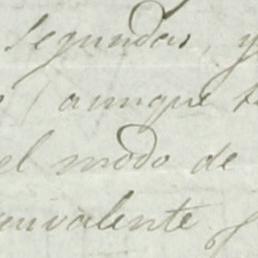 segundas, y
aunque
el modo de
equivalente